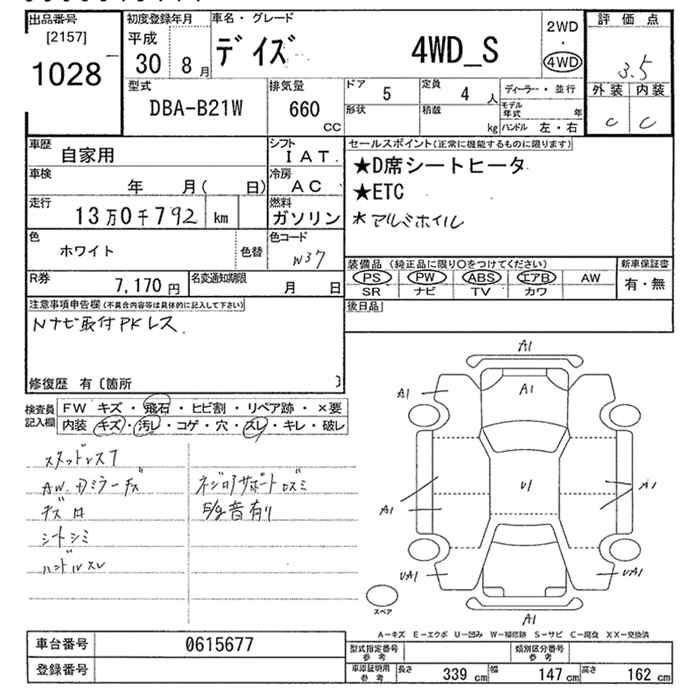 出品番号
[2157]
1028
初度登録年月
平成
30 8月
車名・グレード
デイズ 4WD_S
2WD
・
4WD
評価点
3.5
外装 内装
C C
型式
DBA-B21W
排気量
660
CC
ドア
5
定員
4 人
形状
積載
kg
ディーラー・並行
モデル年式 年
ハンドル 左・右
車歴
自家用
シフト
IAT
車検
年 月( 日)
冷房
AC
走行
13万0千792 km
燃料
ガソリン
色
ホワイト
色替
色コード
W37
R券
7,170円
名変通知期限
月 日
セールスポイント(正常に機能するものに限ります)
★D席シートヒータ
★ETC
*アルミホイル
装備品(純正品に限り〇をつけてください)
新車保証書
PS PW ABS エアB AW
SR ナビ TV カワ
有・無
後日品
注意事項申告欄(不具合内容等は具体的に記入して下さい)
Nナビ取付PKレス
修復歴 有〔箇所 〕
検査員記入欄
FW キズ・飛石・ヒビ割・リペア跡・×要
内装 キズ・汚レ・コゲ・穴・スレ・キレ・破レ
スタッドレス7
AW.ドミラーキズ
シートシミ
ハンドルスレ
異音有り
A1
A1
A1
A1
U1
A1
A1
UA1
UA1
A1
スペア
A-キズ E-エクボ U-凹み W-補修跡 S-サビ C-腐食 XX-交換済
車台番号
0615677
登録番号
型式指定番号
参考
類別区分番号
参考
車庫証明用
参考
長さ 339 cm 幅 147 cm 高さ 162 cm